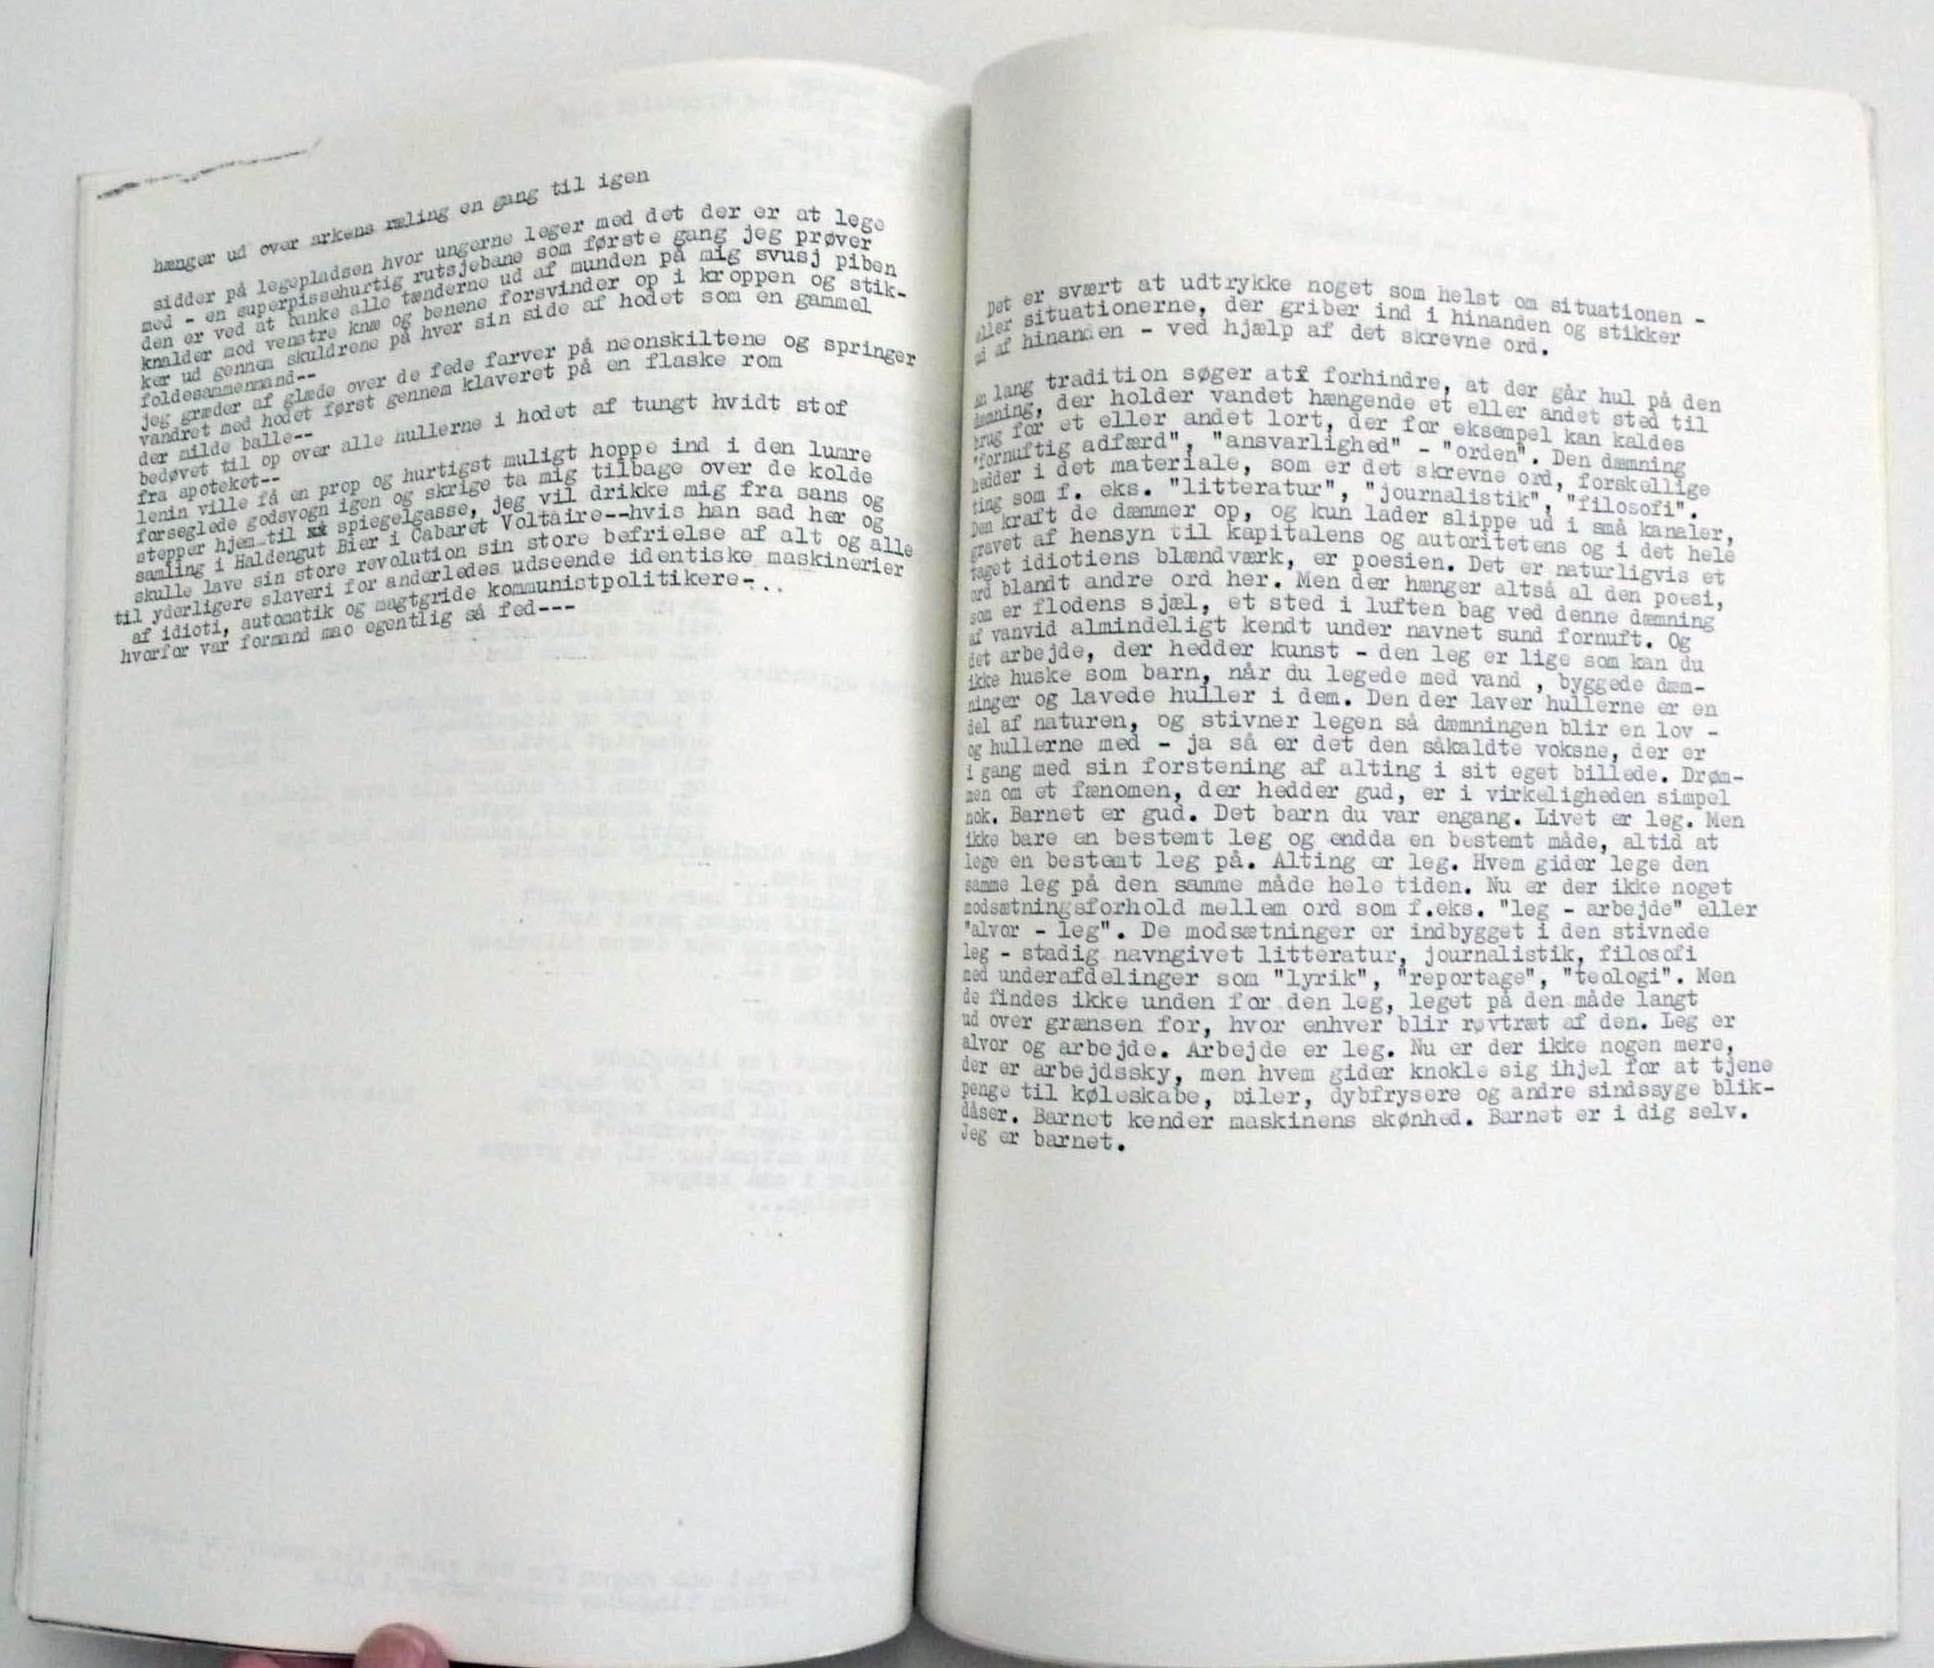 hænger ud over arkens ræling en gang til igen
sidder på legepladsen hvor ungerne leger med det der er at lege
med - en superpissehurtig rutsjebane som første gang jeg prøver
den er ved at banke alle tænderne ud af munden på mig svusj piben
knalder mod venstre knæ og benene forsvinder op i kroppen og stik-
ker ud gennem skuldrene på hver sin side af hodet som en gammel
foldesammenmand--
jeg græder af glæde over de fede farver på neonskiltene og springer
vandret med hodet først gennem klaveret på en flaske rom
der milde balle--
bedøvet til op over alle hullerne i hodet af tungt hvidt stof
fra apoteket--
lenin ville få en prop og hurtigst muligt hoppe ind i den lumre
forseglede godsvogn igen og skrige ta mig tilbage over de kolde
stepper hjem til spiegelgasse, jeg vil drikke mig fra sans og
samling i Haldengut Bier i Cabaret Voltaire--hvis han sad her og
skulle lave sin store revolution sin store befrielse af alt og alle
til yderligere slaveri for anderledes udseende identiske maskinerier
af idioti, automatik og magtgride kommunistpolitikere-...
hvorfor var formand mao egentlig så fed---
Det er svært at udtrykke noget som helst om situationen -
eller situationerne, der griber ind i hinanden og stikker
ud af hinanden - ved hjælp af det skrevne ord.
En lang tradition søger atf forhindre, at der går hul på den
dæmning, der holder vandet hængende et eller andet sted til
brug for et eller andet lort, der for eksempel kan kaldes
"fornuftig adfærd", "ansvarlighed" - "orden". Den dæmning
hedder i det materiale, som er det skrevne ord, forskellige
ting som f. eks. "litteratur", "journalistik", "filosofi".
Den kraft de dæmmer op, og kun lader slippe ud i små kanaler,
gravet af hensyn til kapitalens og autoritetens og i det hele
taget idiotiens blændværk, er poesien. Det er naturligvis et
ord blandt andre ord her. Men der hænger altså al den poesi,
som er flodens sjæl, et sted i luften bag ved denne dæmning
af vanvid almindeligt kendt under navnet sund fornuft. Og
det arbejde, der hedder kunst - den leg er lige som kan du
ikke huske som barn, når du legede med vand , byggede dæm-
ninger og lavede huller i dem. Den der laver hullerne er en
del af naturen, og stivner legen så dæmningen blir en lov -
og hullerne med - ja så er det den såkaldte voksne, der er
i gang med sin forstening af alting i sit eget billede. Drøm-
men om et fænomen, der hedder gud, er i virkeligheden simpel
nok. Barnet er gud. Det barn du var engang. Livet er leg. Men
ikke bare en bestemt leg og endda en bestemt måde, altid at
lege en bestemt leg på. Alting er leg. Hvem gider lege den
samme leg på den samme måde hele tiden. Nu er der ikke noget
modsætningsforhold mellem ord som f.eks. "leg - arbejde" eller
"alvor - leg". De modsætninger er indbygget i den stivnede
leg - stadig navngivet litteratur, journalistik, filosofi
med underafdelinger som "lyrik", "reportage", "teologi". Men
de findes ikke unden for den leg, leget på den måde langt
ud over grænsen for, hvor enhver blir røvtræt af den. Leg er
alvor og arbejde. Arbejde er leg. Nu er der ikke nogen mere,
der er arbejdssky, men hvem gider knokle sig ihjel for at tjene
penge til køleskabe, biler, dybfrysere og andre sindssyge blik-
dåser. Barnet kender maskinens skønhed. Barnet er i dig selv.
Jeg er barnet.